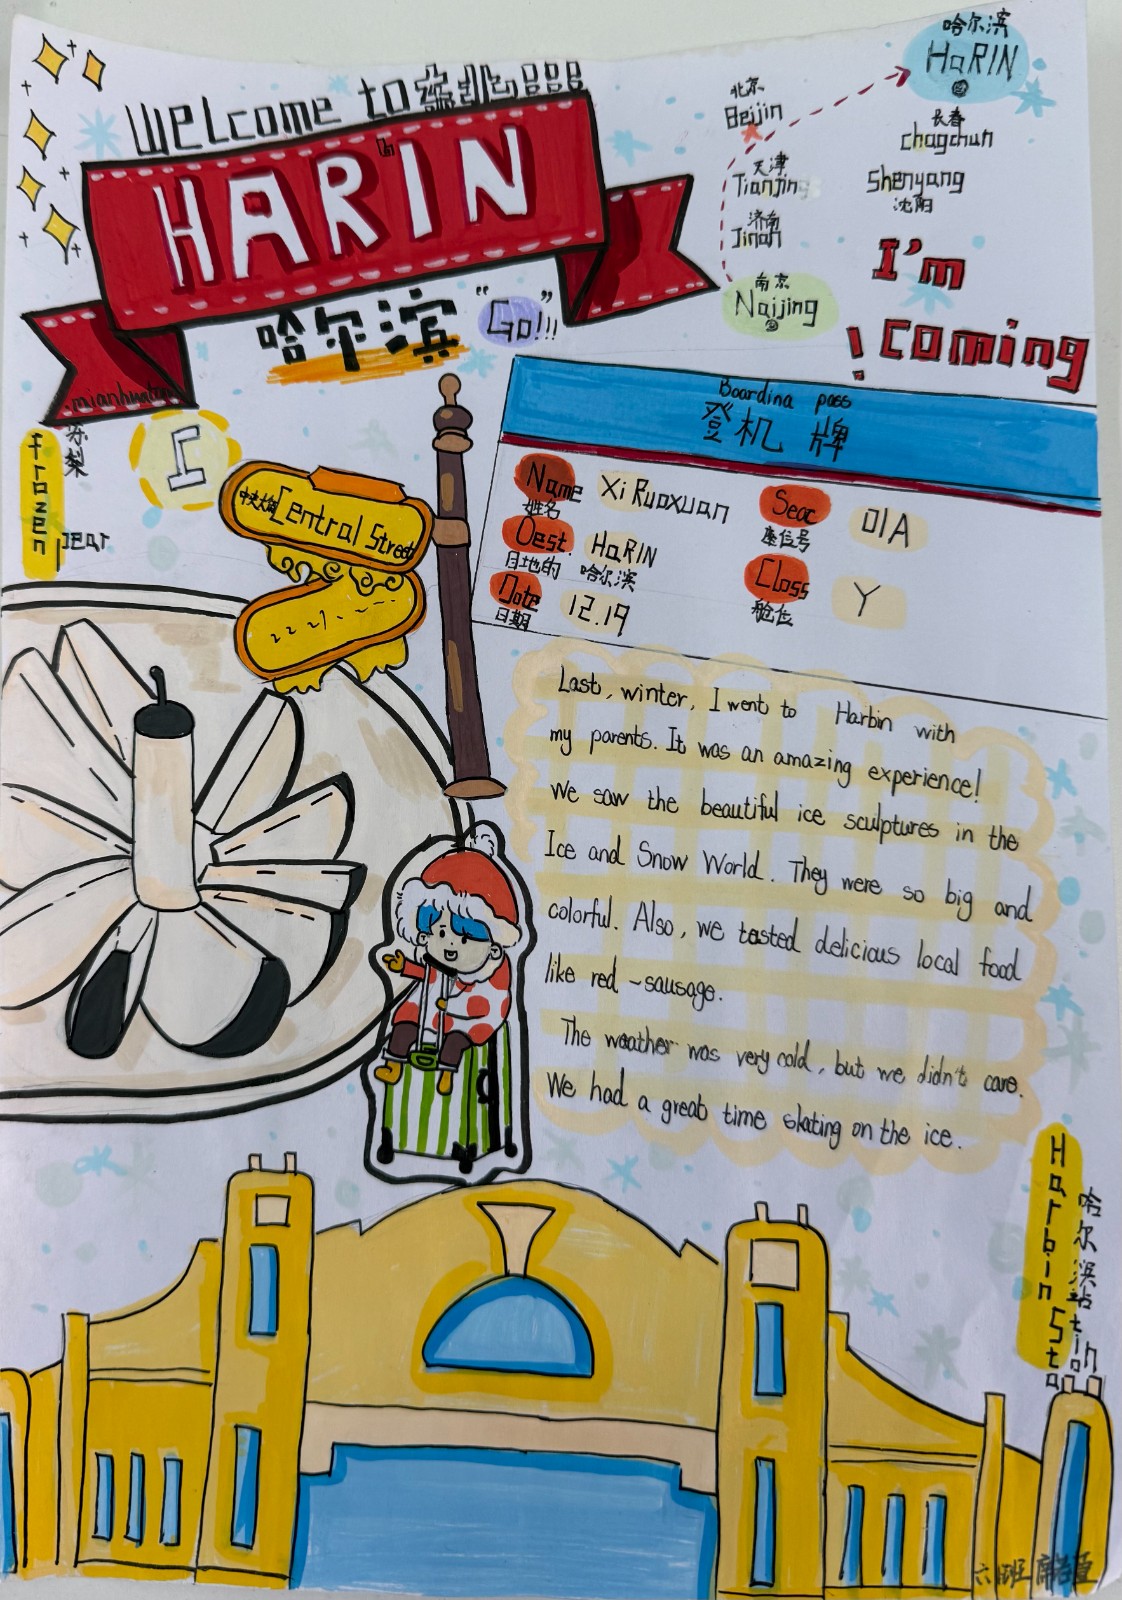 Welcome to
HARIN
哈尔滨 "Go!!!"
哈尔滨
HaRIN
北京
Beijin
长春
chagchun
天津
Tianjing
Shenyang
沈阳
济南
Jinan
南京
Naijing
I'm
coming!
冻梨
Frozen pear
中央大街 Central Street
Boardina pass
登机牌
Name Xi Ruoxuan
姓名
Seat 01A
座位号
Dest. HaRIN
目地的 哈尔滨
Class Y
舱位
Date 12.19
日期
Last, winter, I went to Harbin with
my parents. It was an amazing experience!
We saw the beautiful ice sculptures in the
Ice and Snow World. They were so big and
colorful. Also, we tasted delicious local food
like red-sausage.
The weather was very cold, but we didn't care.
We had a great time skating on the ice.
Harbin Station
哈尔滨站